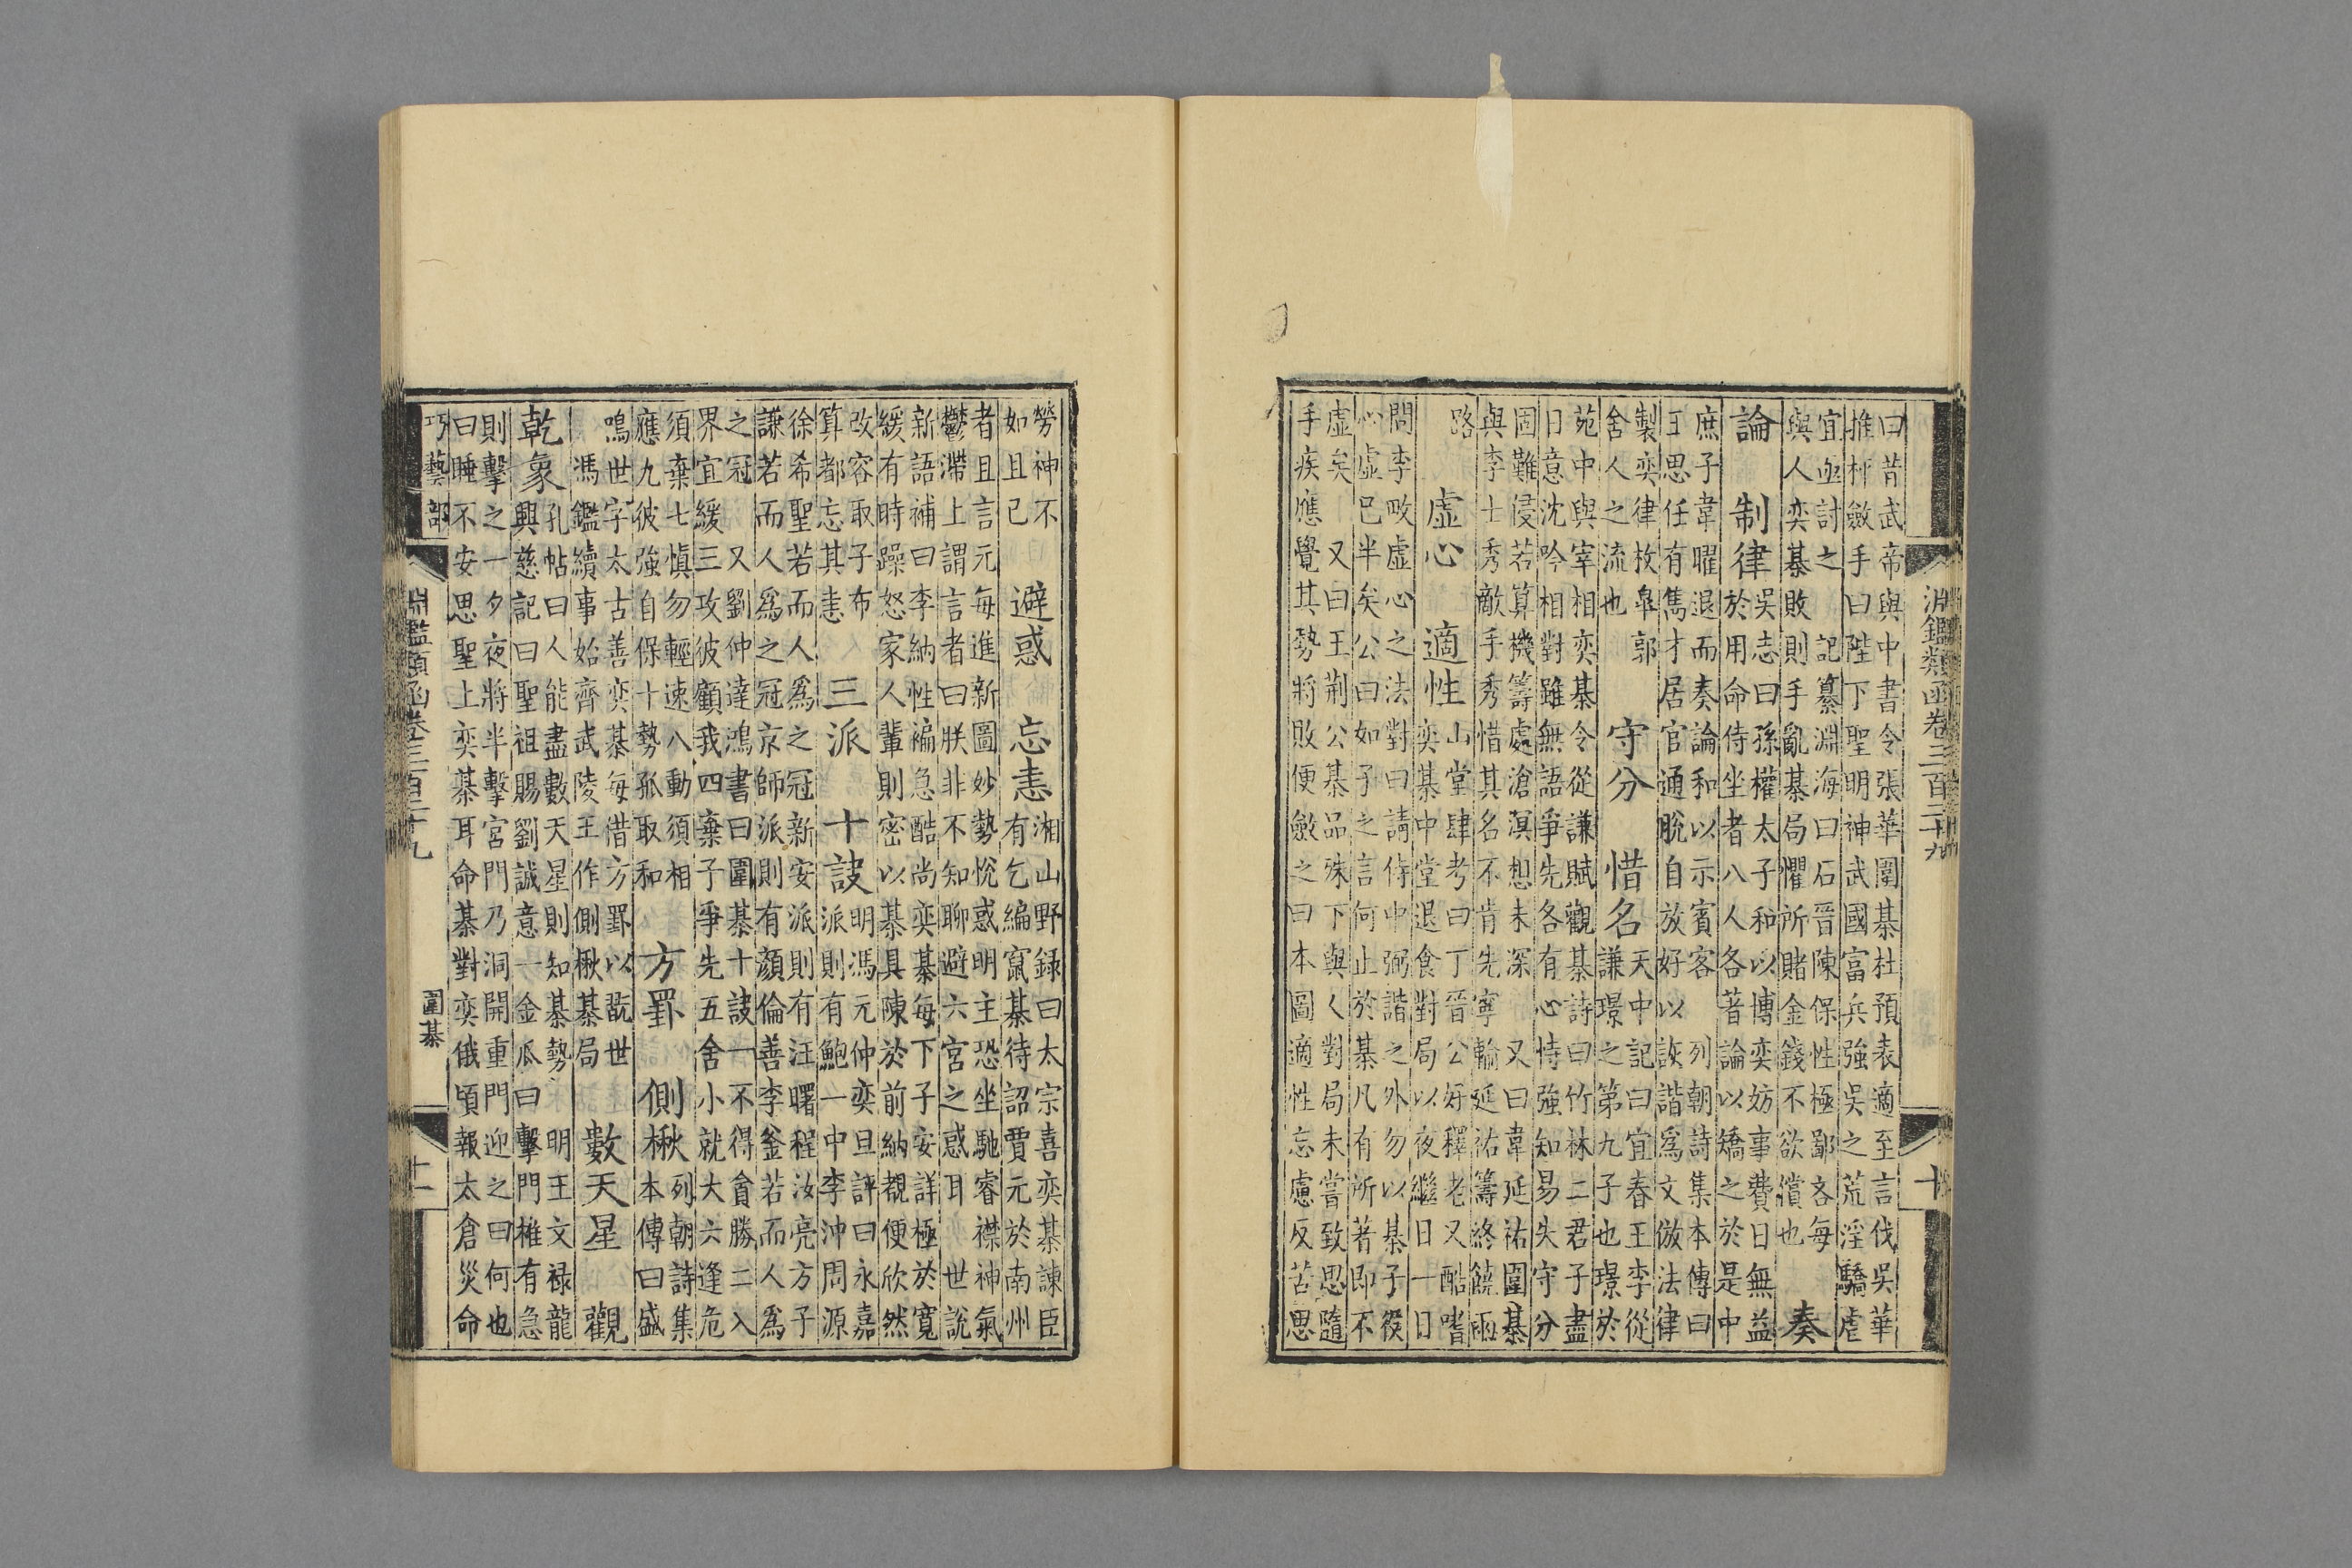 淵鑑類函卷三百二十九 十
曰昔武帝與中書令張華圍棊杜預表適至言伐吳華
推枰斂手曰陛下聖明神武國富兵強吳之荒淫驕虐
宜亟討之 記纂淵海曰石晉陳保性極鄙吝每
與人奕棊敗則手亂棊局懼所賭金錢不欲償也
奏
論 制律
吳志曰孫權太子和以博奕妨事費日無益
於用命侍坐者八人各著論以矯之於是中
庶子韋曜退而奏論和以示賓客 列朝詩集本傳曰
王思任有雋才居官通脫自放好以詼諧爲文倣法律
製奕律枚皋郭
舍人之流也
守分 惜名
天中記曰宜春王李從
謙璟之第九子也璟於
苑中與宰相奕棊令從謙賦觀棊詩曰竹林二君子盡
日意沈吟相對雖無語爭先各有心恃強知易失守分
固難侵若算機籌處滄溟想未深 又曰韋延祐圍棊
與李士秀敵手秀惜其名不肯先寧輸延祐籌終饒兩
路
虛心 適性
山堂肆考曰丁晉公好釋老又酷嗜
奕棊中堂退食對局以夜繼日一日
問李畋虛心之法對曰請侍中弼諧之外勿以棊子役
心虛已半矣公曰如子之言何止於棊凡有所著即不
虛矣 又曰王荊公棊品殊下與人對局未嘗致思隨
手疾應覺其勢將敗便斂之曰本圖適性忘慮反苦思
勞神不
如且已
避惑 忘恚
湘山野録曰太宗喜奕棊諫臣
有乞編竄棊待詔賈元於南州
者且言元每進新圖妙勢悅惑明主恐坐馳睿襟神氣
鬱滯上謂言者曰朕非不知聊避六宮之惑耳 世說
新語補曰李納性褊急酷尚奕棊每下子安詳極於寬
緩有時躁怒家人輩則密以棊具陳於前納覩便欣然
改容取子布
算都忘其恚
三派 十訣
明馮元仲奕旦評曰永嘉
派則有鮑一中李沖周源
徐希聖若而人爲之冠新安派則有汪曙程汝亮方子
謙若而人爲之冠京師派則有顏倫善李釜若而人爲
之冠 又劉仲達鴻書曰圍棊十訣一不得貪勝二入
界宜緩三攻彼顧我四棄子爭先五舍小就大六逢危
須棄七慎勿輕速八動須相
應九彼強自保十勢孤取和
方罫 側楸
列朝詩集
本傳曰盛
鳴世字太古善奕棊每借方罫以翫世
馮鑑續事始齊武陵王作側楸棊局
數天星 觀
乾象
孔帖曰人能盡數天星則知棊勢 明王文禄龍
興慈記曰聖祖賜劉誠意一金瓜曰擊門椎有急
則擊之一夕夜將半擊宮門乃洞開重門迎之曰何也
曰睡不安思聖上奕棊耳命棊對奕俄頃報太倉災命
巧藝部 淵鑑類函卷三百二十九 圍棊 十一